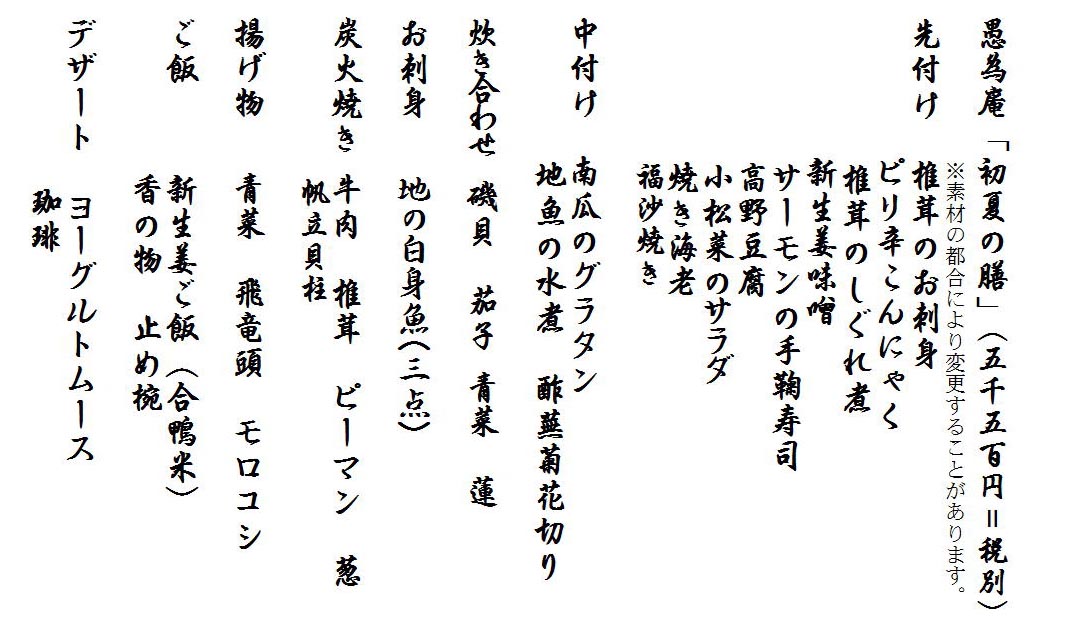 愚為庵「初夏の膳」(五千五百円=税別)
※素材の都合により変更することがあります。
先付け　椎茸のお刺身
ピリ辛こんにゃく
椎茸のしぐれ煮
新生姜味噌
サーモンの手鞠寿司
高野豆腐
小松菜のサラダ
焼き海老
福沙焼き
中付け　南瓜のグラタン
地魚の水煮　酢蕪菊花切り
炊き合わせ　磯貝　茄子　青菜　蓮
お刺身　地の白身魚(三点)
炭火焼き　牛肉　椎茸　ピーマン　葱
帆立貝柱
揚げ物　青菜　飛竜頭　モロコシ
ご飯　新生姜ご飯(合鴨米)
香の物　止め椀
デザート　ヨーグルトムース
珈琲